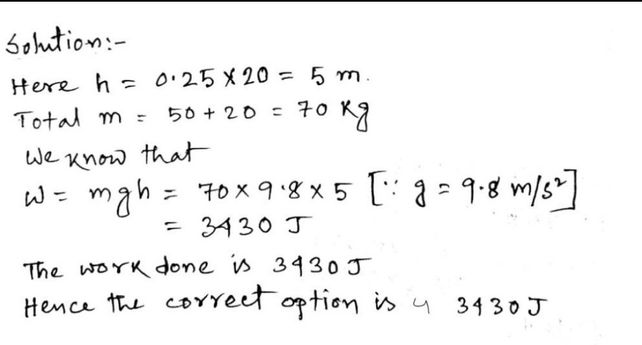 Solution:-
Here h = 0.25 x 20 = 5 m.
Total m = 50 + 20 = 70 Kg
We know that
W = mgh = 70 x 9.8 x 5 [∵ g = 9.8 m/s²]
= 3430 J
The work done is 3430 J
Hence the correct option is 4 3430 J